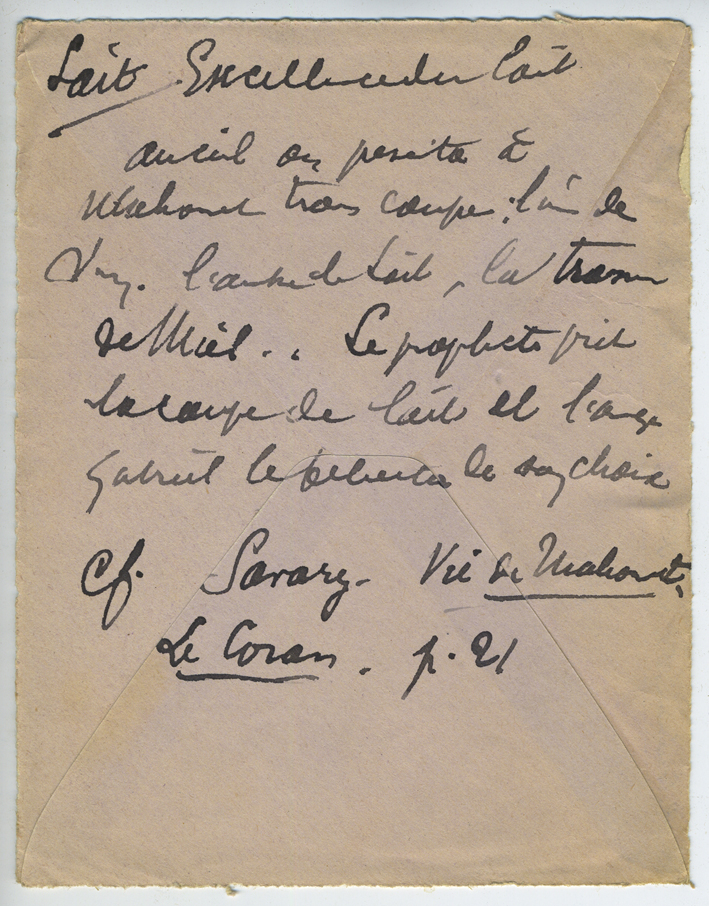 Lait Excellence du lait
au ciel on présenta à
Mahomet trois coupes : l'une de
Vin. l'autre de Lait, la troisième
de Miel.. Le prophète prit
la coupe de lait et l'ange
Gabriel le félicita de son choix
cf. Savary. Vie de Mahomet,
Le Coran. p. 21